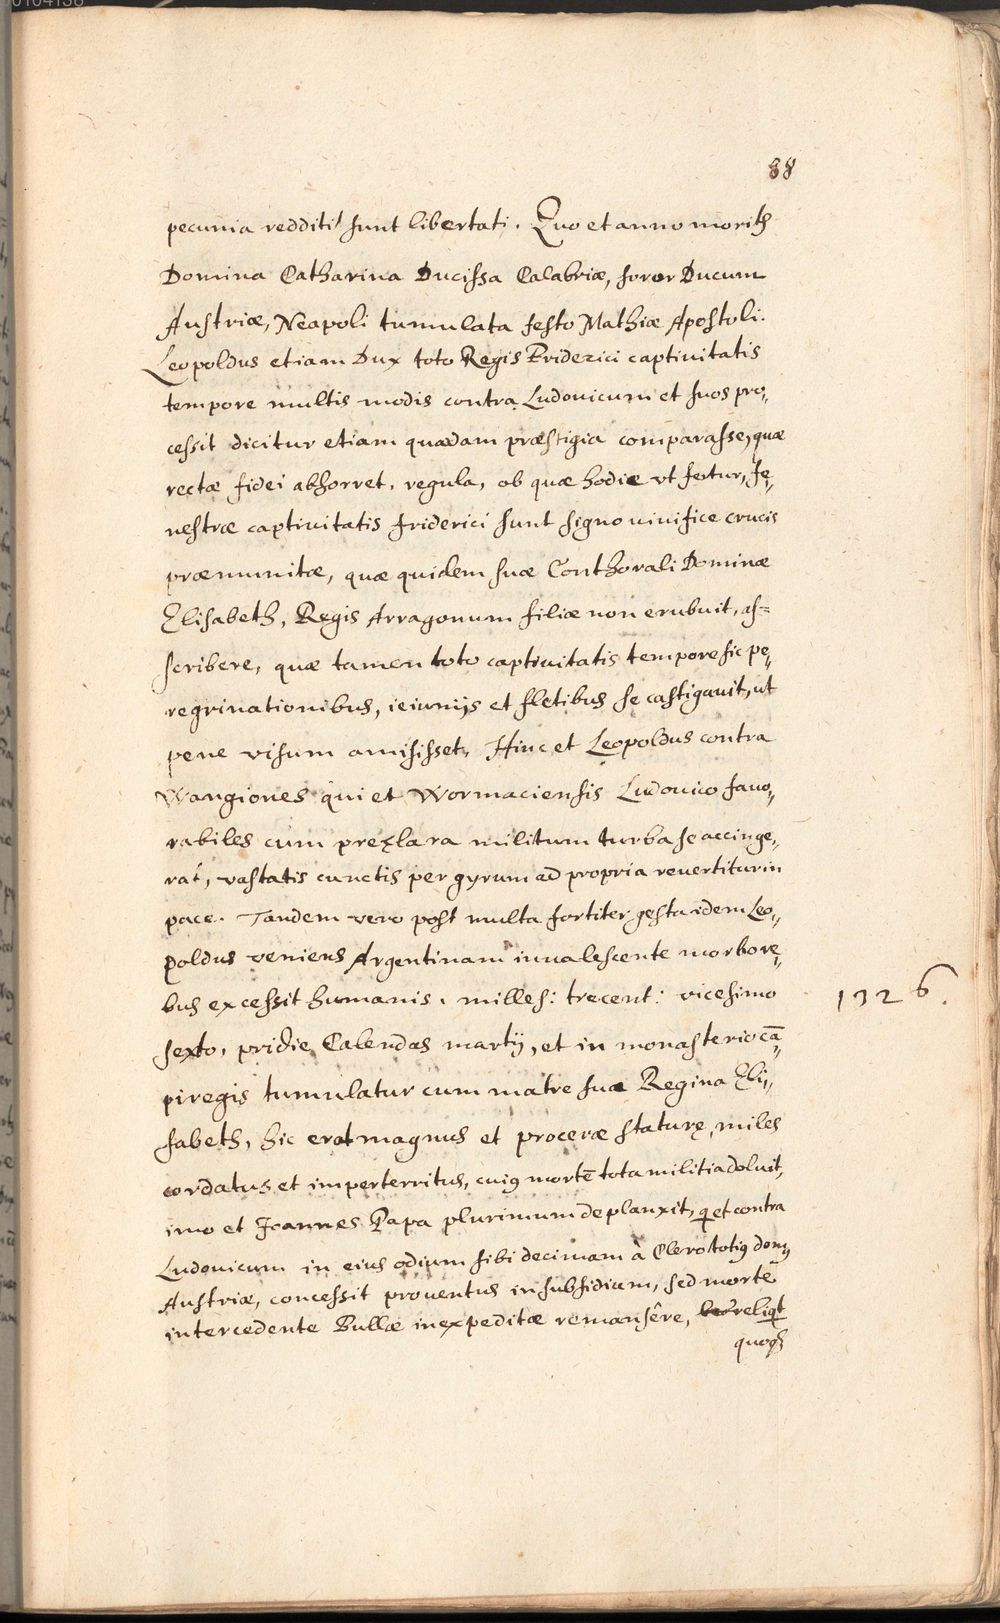 88
pecunia redditi sunt libertati. Quo et anno moritꝫ
Domina Catharina Ducissa Calabriæ, soror Ducum
Austriæ, Neapoli tumulata festo Mathiæ Apostoli.
Leopoldus etiam Dux toto Regis Friderici captiuitatis
tempore multis modis contra Ludouicum et suos pro„
cessit dicitur etiam quædam præstigia comparasse, quæ
rectæ fidei abhorret, regula, ob quæ hodie vt fertur, fe„
nestræ captiuitatis friderici sunt signo viuifice crucis
præmunitæ, quæ quidem suæ Conthorali Dominæ
Elisabeth, Regis Arragonum filiæ non erubuit, as=
scribere, quæ tamen toto captiuitatis tempore sic pe„
regrinationibus, ieiunijs et fletibus se castigauit, ut
pene visum amisisset, Hinc et Leopoldus contra
Wangiones qui et Wormaciensis Ludouico fauo„
rabiles cum preclara militum turba se accinge„
rat, vastatis cunctis per gyrum ad propria reuertitur in
pace. Tandem vero post multa fortiter gesta idem Leo„
poldus veniens Argentinam inualescente morbo re„
bus excessit humanis, milles: trecent: vicesimo
sexto, pridie Calendas martij, et in monasterio cā„
piregis tumulatur cum matre sua Regina Eli„
sabeth, hic erat magnus et proceræ staturę, miles
cordatus et imperterritus, cuiꝯ mortē tota militia doluit,
imo et Joannes Papa plurimum deplanxit, q et contra
Ludouicum in eius odium sibi decimam à Clero totiꝯ domꝯ
Austriæ, concessit prouentus in subsidium, sed morte
intercedente Bullæ inexpeditæ remansêre, reliqt
quoqꝫ
1326.